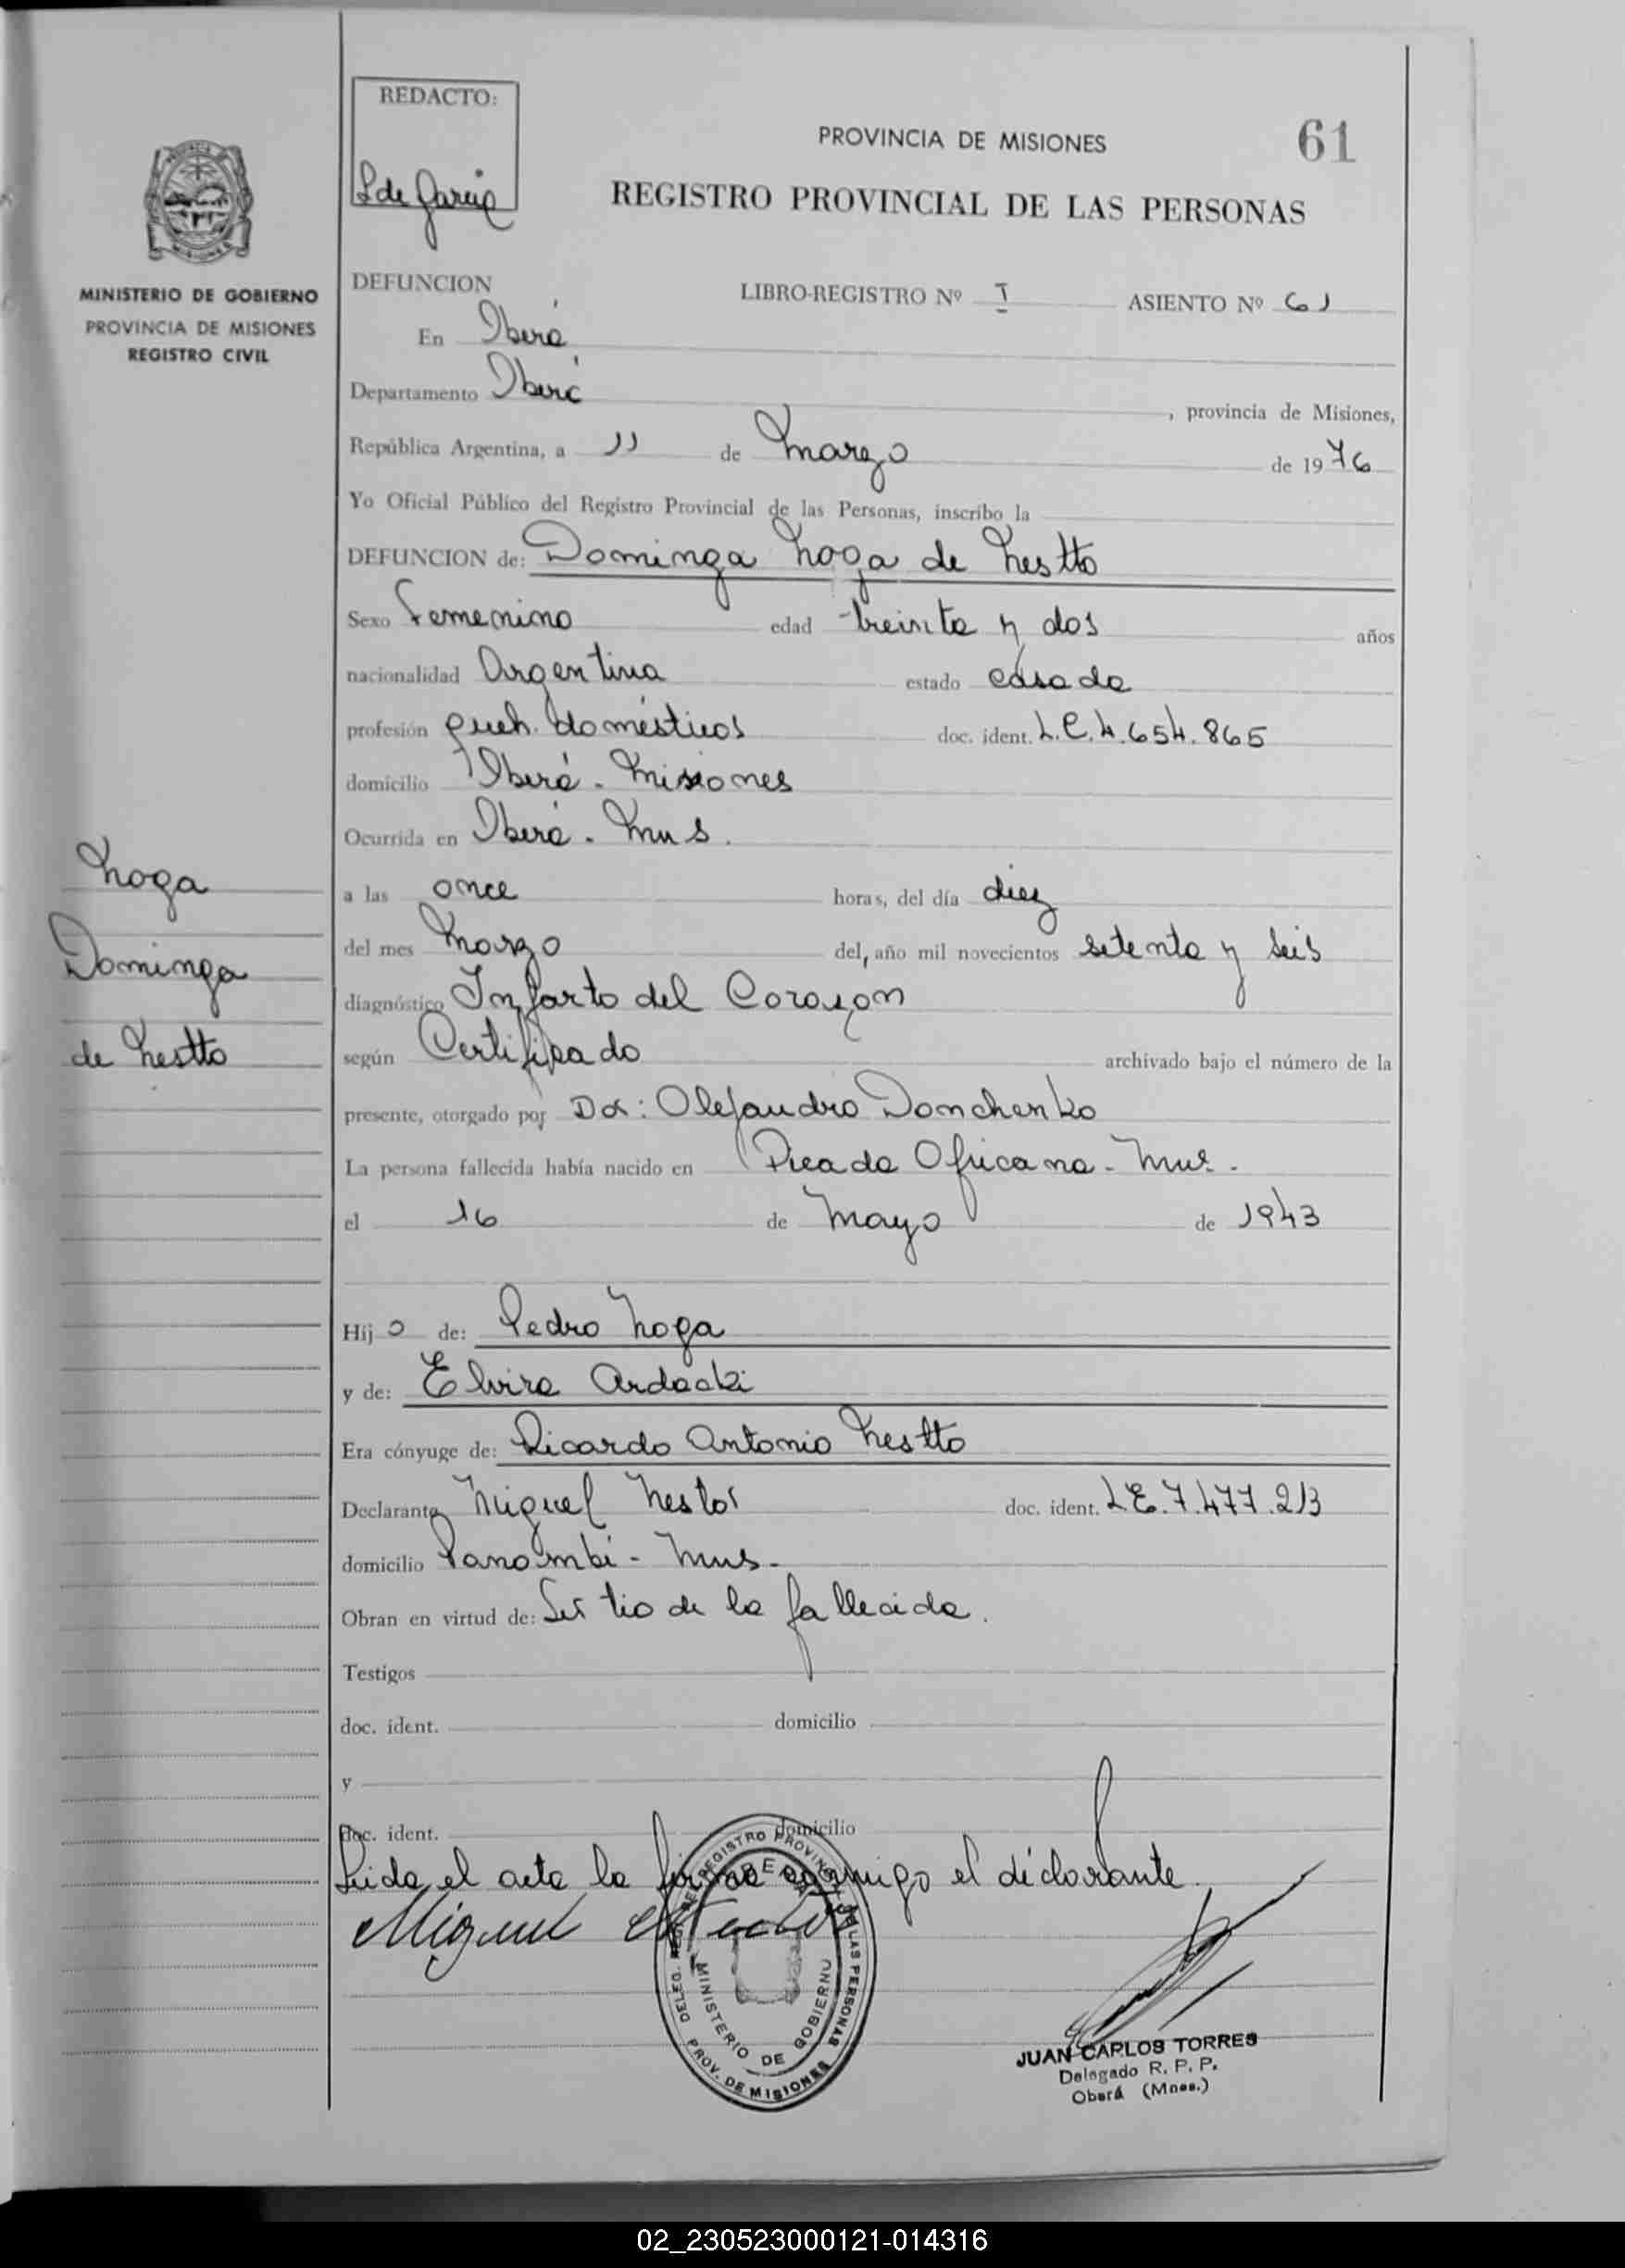 REDACTO:
L de Garcia
PROVINCIA DE MISIONES
61
REGISTRO PROVINCIAL DE LAS PERSONAS
MINISTERIO DE GOBIERNO
PROVINCIA DE MISIONES
REGISTRO CIVIL
DEFUNCION
LIBRO-REGISTRO Nº I ASIENTO Nº 61
En Oberá
Departamento Oberá, provincia de Misiones,
República Argentina, a 11 de Marzo de 1976
Yo Oficial Público del Registro Provincial de las Personas, inscribo la
DEFUNCION de: Dominga Noga de Nestto
Sexo Femenino edad treinta y dos años
nacionalidad Argentina estado casada
profesión queh. domésticos doc. ident. L.C.4.654.865
domicilio Oberá - Misiones
Ocurrida en Oberá - Mns.
a las once horas, del día diez
del mes Marzo del año mil novecientos setenta y seis
diagnóstico Infarto del Corazon
según Certificado archivado bajo el número de la
presente, otorgado por Dr: Alejandro Donchenko
La persona fallecida había nacido en Picada Africana - Mns.
el 16 de Mayo de 1943
Noga
Dominga
de Nestto
Hij a de: Pedro Noga
y de: Elvira
Era cónyuge de: Ricardo Antonio Nestto
Declarante Miguel Nestor doc. ident. L.E.7.477.213
domicilio Panambi - Mns.
Obran en virtud de: Ser tio de la fallecida.
Testigos
doc. ident. domicilio
y
doc. ident. domicilio
Leida el acta la firma conmigo el declarante.
Miguel
REGISTRO PROVINCIAL DE LAS PERSONAS
MINISTERIO DE GOBIERNO
PROV. DE MISIONES
JUAN CARLOS TORRES
Delegado R. P. P.
Oberá (Mnes.)
02_230523000121-014316